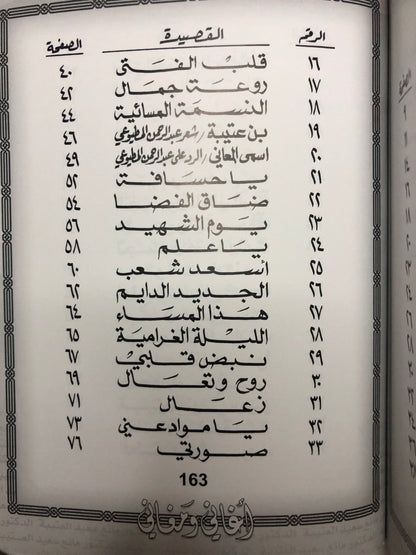 الرقم القصيدة الصفحة
١٦ قلب الفتى ٤٠
١٧ روعة جمال ٤٢
١٨ النسمة المسائية ٤٤
١٩ بن عتيبة / شعر عبدالرحمن المطوعي ٤٦
٢٠ اسمى المعاني / الرد على عبدالرحمن المطوعي ٤٩
٢١ يا حسافة ٥٢
٢٢ ضاق الفضا ٥٤
٢٣ يوم الشهيد ٥٦
٢٤ يا علم ٥٨
٢٥ اسعد شعب ٦٠
٢٦ الجديد الدايم ٦٢
٢٧ هذا المساء ٦٤
٢٨ الليلة الغرامية ٦٥
٢٩ نبض قلبي ٦٧
٣٠ روح وتعال ٦٩
٣١ زعال ٧١
٣٢ يا موادعني ٧٣
٣٣ صورتي ٧٦
163
أغاني ومغاني